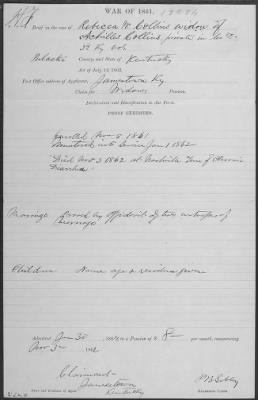 WAR OF 1861.
Brief in the case of Rebecca W. Collins widow of
Achilles Collins private in the
Ky Vols
Pulaski County and State of Kentucky
Act of July 14, 1862.
Post Office address of Applicant, Jamestown Ky
Claim for Widows Pension.
Declaration and Identification in due Form.
PROOF EXHIBITED.
Enrolled Nov 5 1861
Mustered into Service Jany 1 1862
Died Nov 3 1862 at Nashville Tenn of Chronic
Diarrhea
Marriage proved by affidavit of two witnesses of
Children Name age & residence given
Admitted Jan 30 to a Pension of $ 8- per month, commencing
Nov 3 1862
Claimant
Jamestown
Kentucky
Name and Residence of Agent.